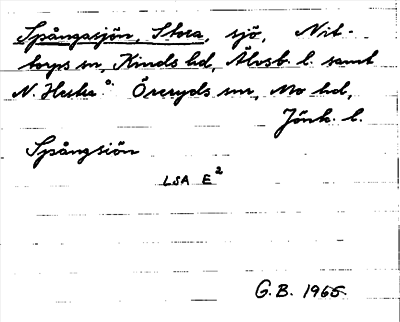 Spångasjön, Stora, sjö, Nit-
torps sn, Kinds hd, Älvsb. l. samt
N. Hestra o Öreryds snr, Mo hd,
Jönk. l.
Spångsiön
LSA E²
G.B. 1965